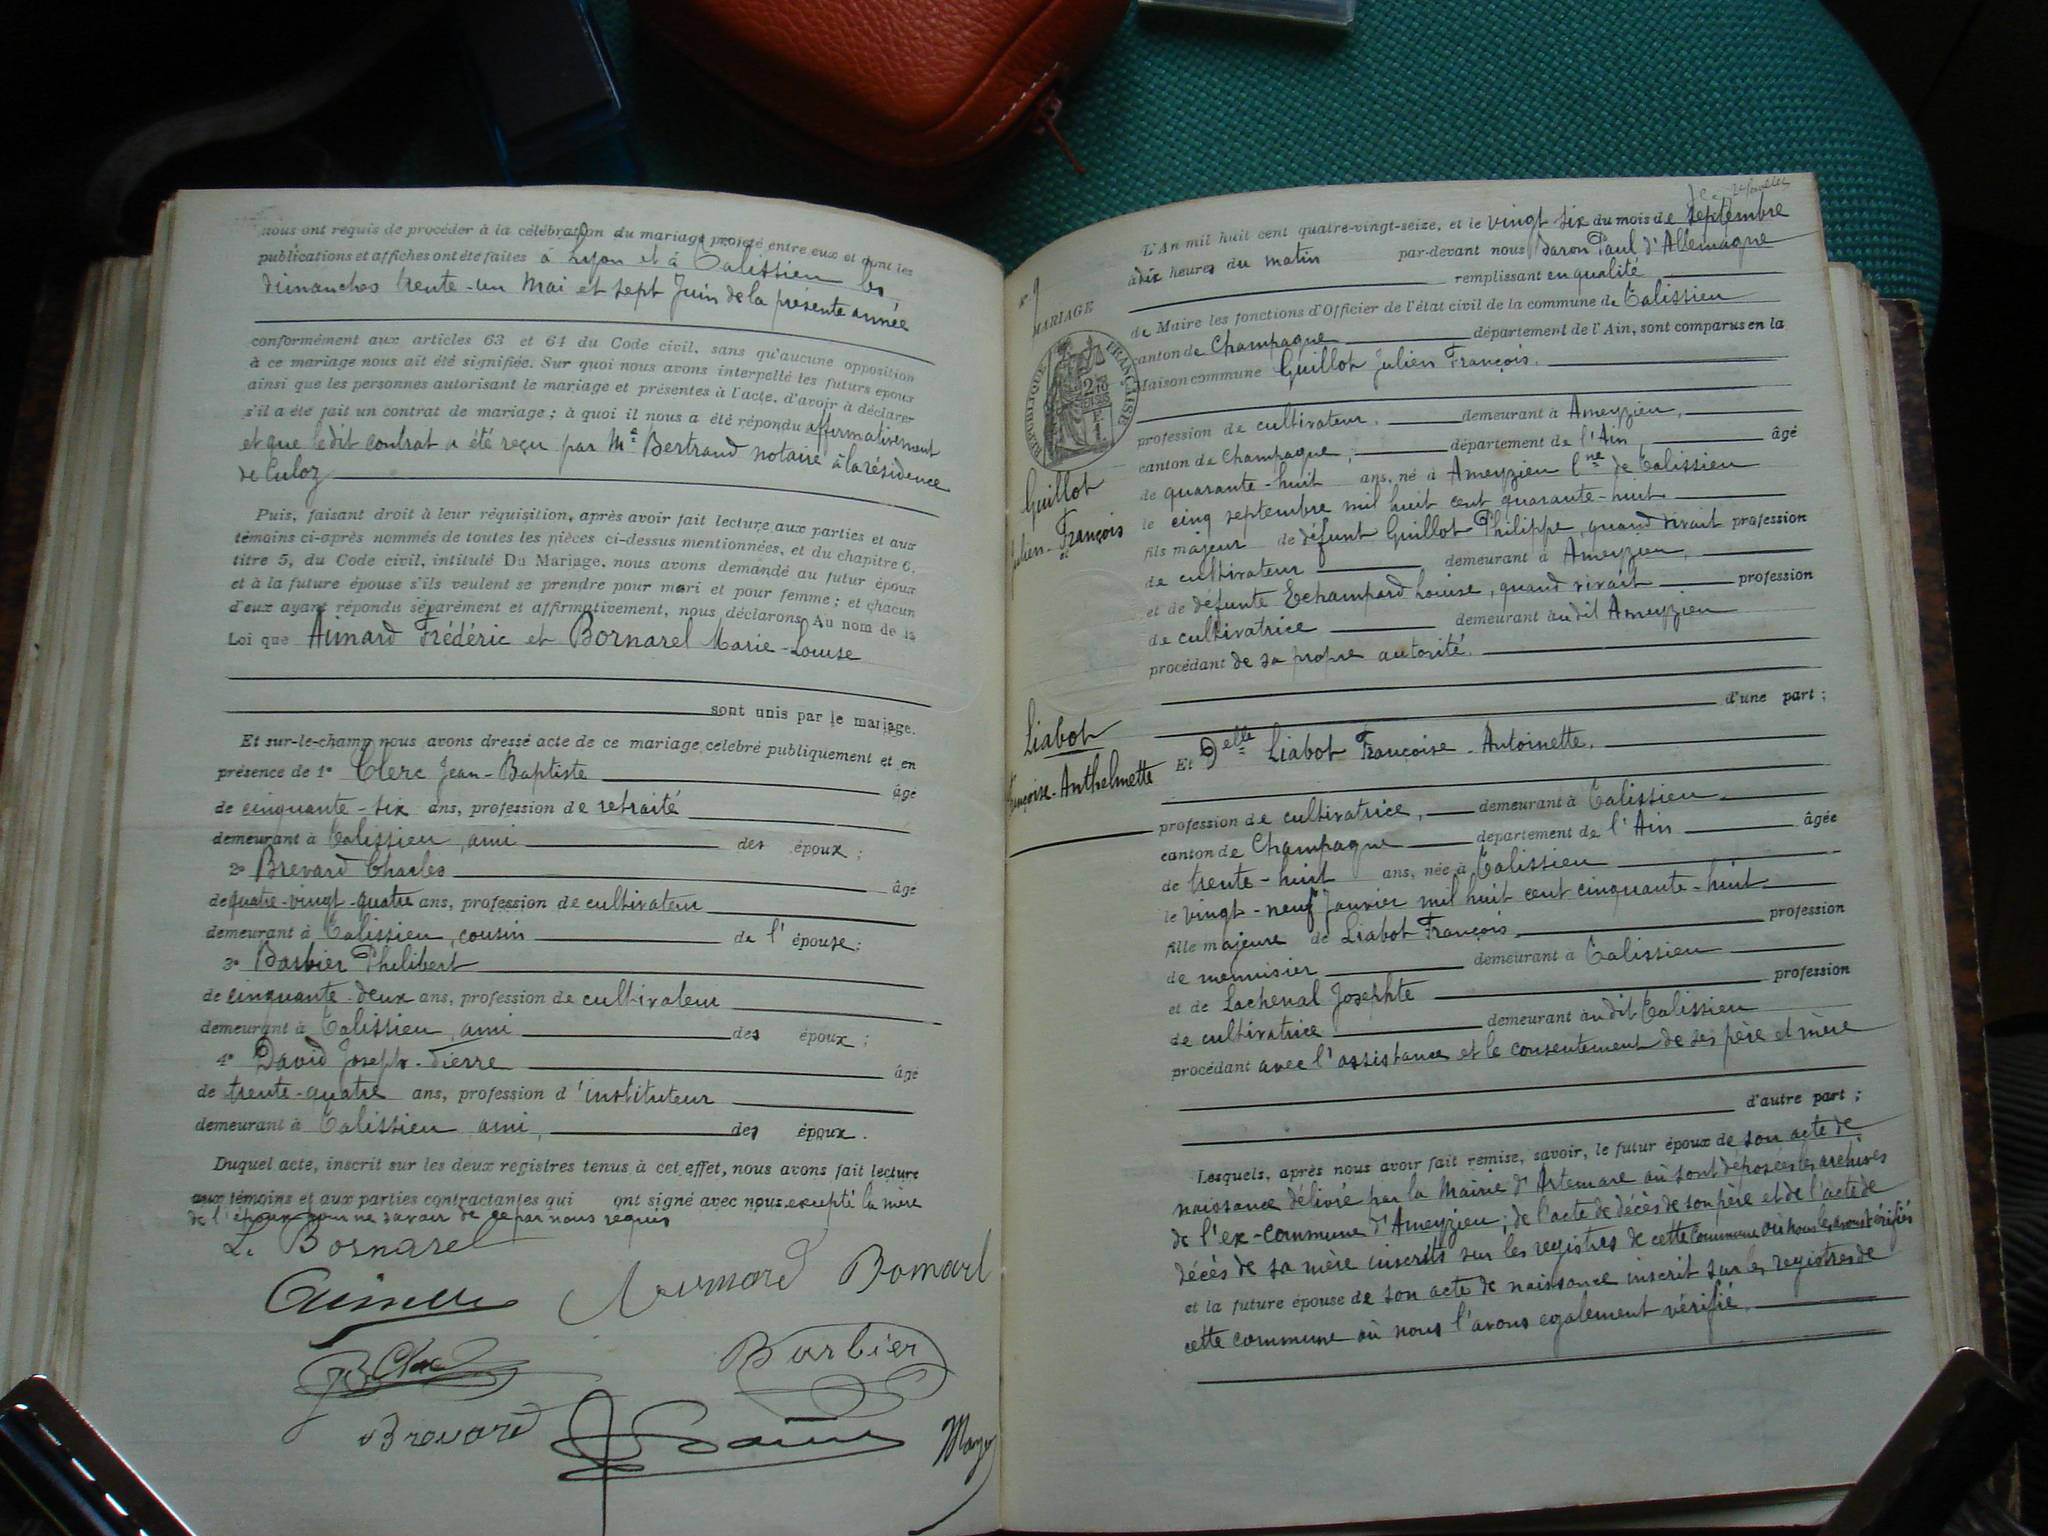 nous ont requis de procéder à la célébration du mariage projeté entre eux et dont les
publications et affiches ont été faites à Lyon et à Talissieu les
dimanches trente-un Mai et sept Juin de la présente année
conformément aux articles 63 et 64 du Code civil, sans qu'aucune opposition
à ce mariage nous ait été signifiée. Sur quoi nous avons interpellé les futurs époux
ainsi que les personnes autorisant le mariage et présentes à l'acte, d'avoir à déclarer
s'il a été fait un contrat de mariage ; à quoi il nous a été répondu affirmativement
et que ledit contrat a été reçu par Me Bertrand notaire à la résidence
de Culoz
Puis, faisant droit à leur réquisition, après avoir fait lecture aux parties et aux
témoins ci-après nommés de toutes les pièces ci-dessus mentionnées, et du chapitre 6,
titre 5, du Code civil, intitulé Du Mariage, nous avons demandé au futur époux
et à la future épouse s'ils veulent se prendre pour mari et pour femme ; et chacun
d'eux ayant répondu séparément et affirmativement, nous déclarons Au nom de la
Loi que Aimard Frédéric et Bornarel Marie-Louise
sont unis par le mariage.
Et sur-le-champ nous avons dressé acte de ce mariage célébré publiquement et en
présence de 1° Clerc Jean-Baptiste âgé
de cinquante-six ans, profession de retraité
demeurant à Talissieu, ami des époux ;
2° Brevard Charles âgé
de quatre-vingt-quatre ans, profession de cultivateur
demeurant à Talissieu, cousin de l'épouse ;
3° Barbier Philibert
de cinquante-deux ans, profession de cultivateur
demeurant à Talissieu, ami des époux ;
4° David Joseph-Pierre âgé
de trente-quatre ans, profession d'instituteur
demeurant à Talissieu ami, des époux.
Duquel acte, inscrit sur les deux registres tenus à cet effet, nous avons fait lecture
aux témoins et aux parties contractantes qui ont signé avec nous excepté la mère
de l'époux pour ne savoir de ce par nous requis
L. Bornarel
Bornarel
JB Clerc Barbier
Brevard
N° 9
MARIAGE
RÉPUBLIQUE FRANÇAISE
Guillot
Julien-François
et
Liabot
Françoise-Anthelmette
L'An mil huit cent quatre-vingt-seize, et le vingt six du mois de septembre
à dix heures du matin par-devant nous Baron Paul d'Allemagne
remplissant en qualité
de Maire les fonctions d'Officier de l'état civil de la commune de Talissieu
canton de Champagne département de l'Ain, sont comparus en la
Maison commune Guillot Julien François.
profession de cultivateur, demeurant à Ameyzieu,
canton de Champagne, département de l'Ain, âgé
de quarante-huit ans, né à Ameyzieu Cne de Talissieu
le cinq septembre mil huit cent quarante-huit
fils majeur de défunt Guillot Philippe, quand vivait profession
de cultivateur demeurant à Ameyzieu,
et de défunte Echampard Louise, quand vivait profession
de cultivatrice demeurant audit Ameyzieu
procédant de sa propre autorité.
d'une part ;
Et Delle Liabot Françoise-Antoinette.
profession de cultivatrice, demeurant à Talissieu
canton de Champagne département de l'Ain âgée
de trente-huit ans, née à Talissieu
le vingt-neuf Janvier mil huit cent cinquante-huit
fille majeure de Liabot François, profession
de menuisier demeurant à Talissieu
et de Lachenal Josephte profession
de cultivatrice demeurant audit Talissieu
procédant avec l'assistance et le consentement de ses père et mère
d'autre part ;
Lesquels, après nous avoir fait remise, savoir, le futur époux de son acte de
naissance délivré par la Mairie d'Artemare où sont déposées les archives
de l'ex-commune d'Ameyzieu ; de l'acte de décès de son père et de l'acte de
décès de sa mère inscrits sur les registres de cette commune où nous les avons vérifiés
et la future épouse de son acte de naissance inscrit sur les registres de
cette commune où nous l'avons également vérifié.